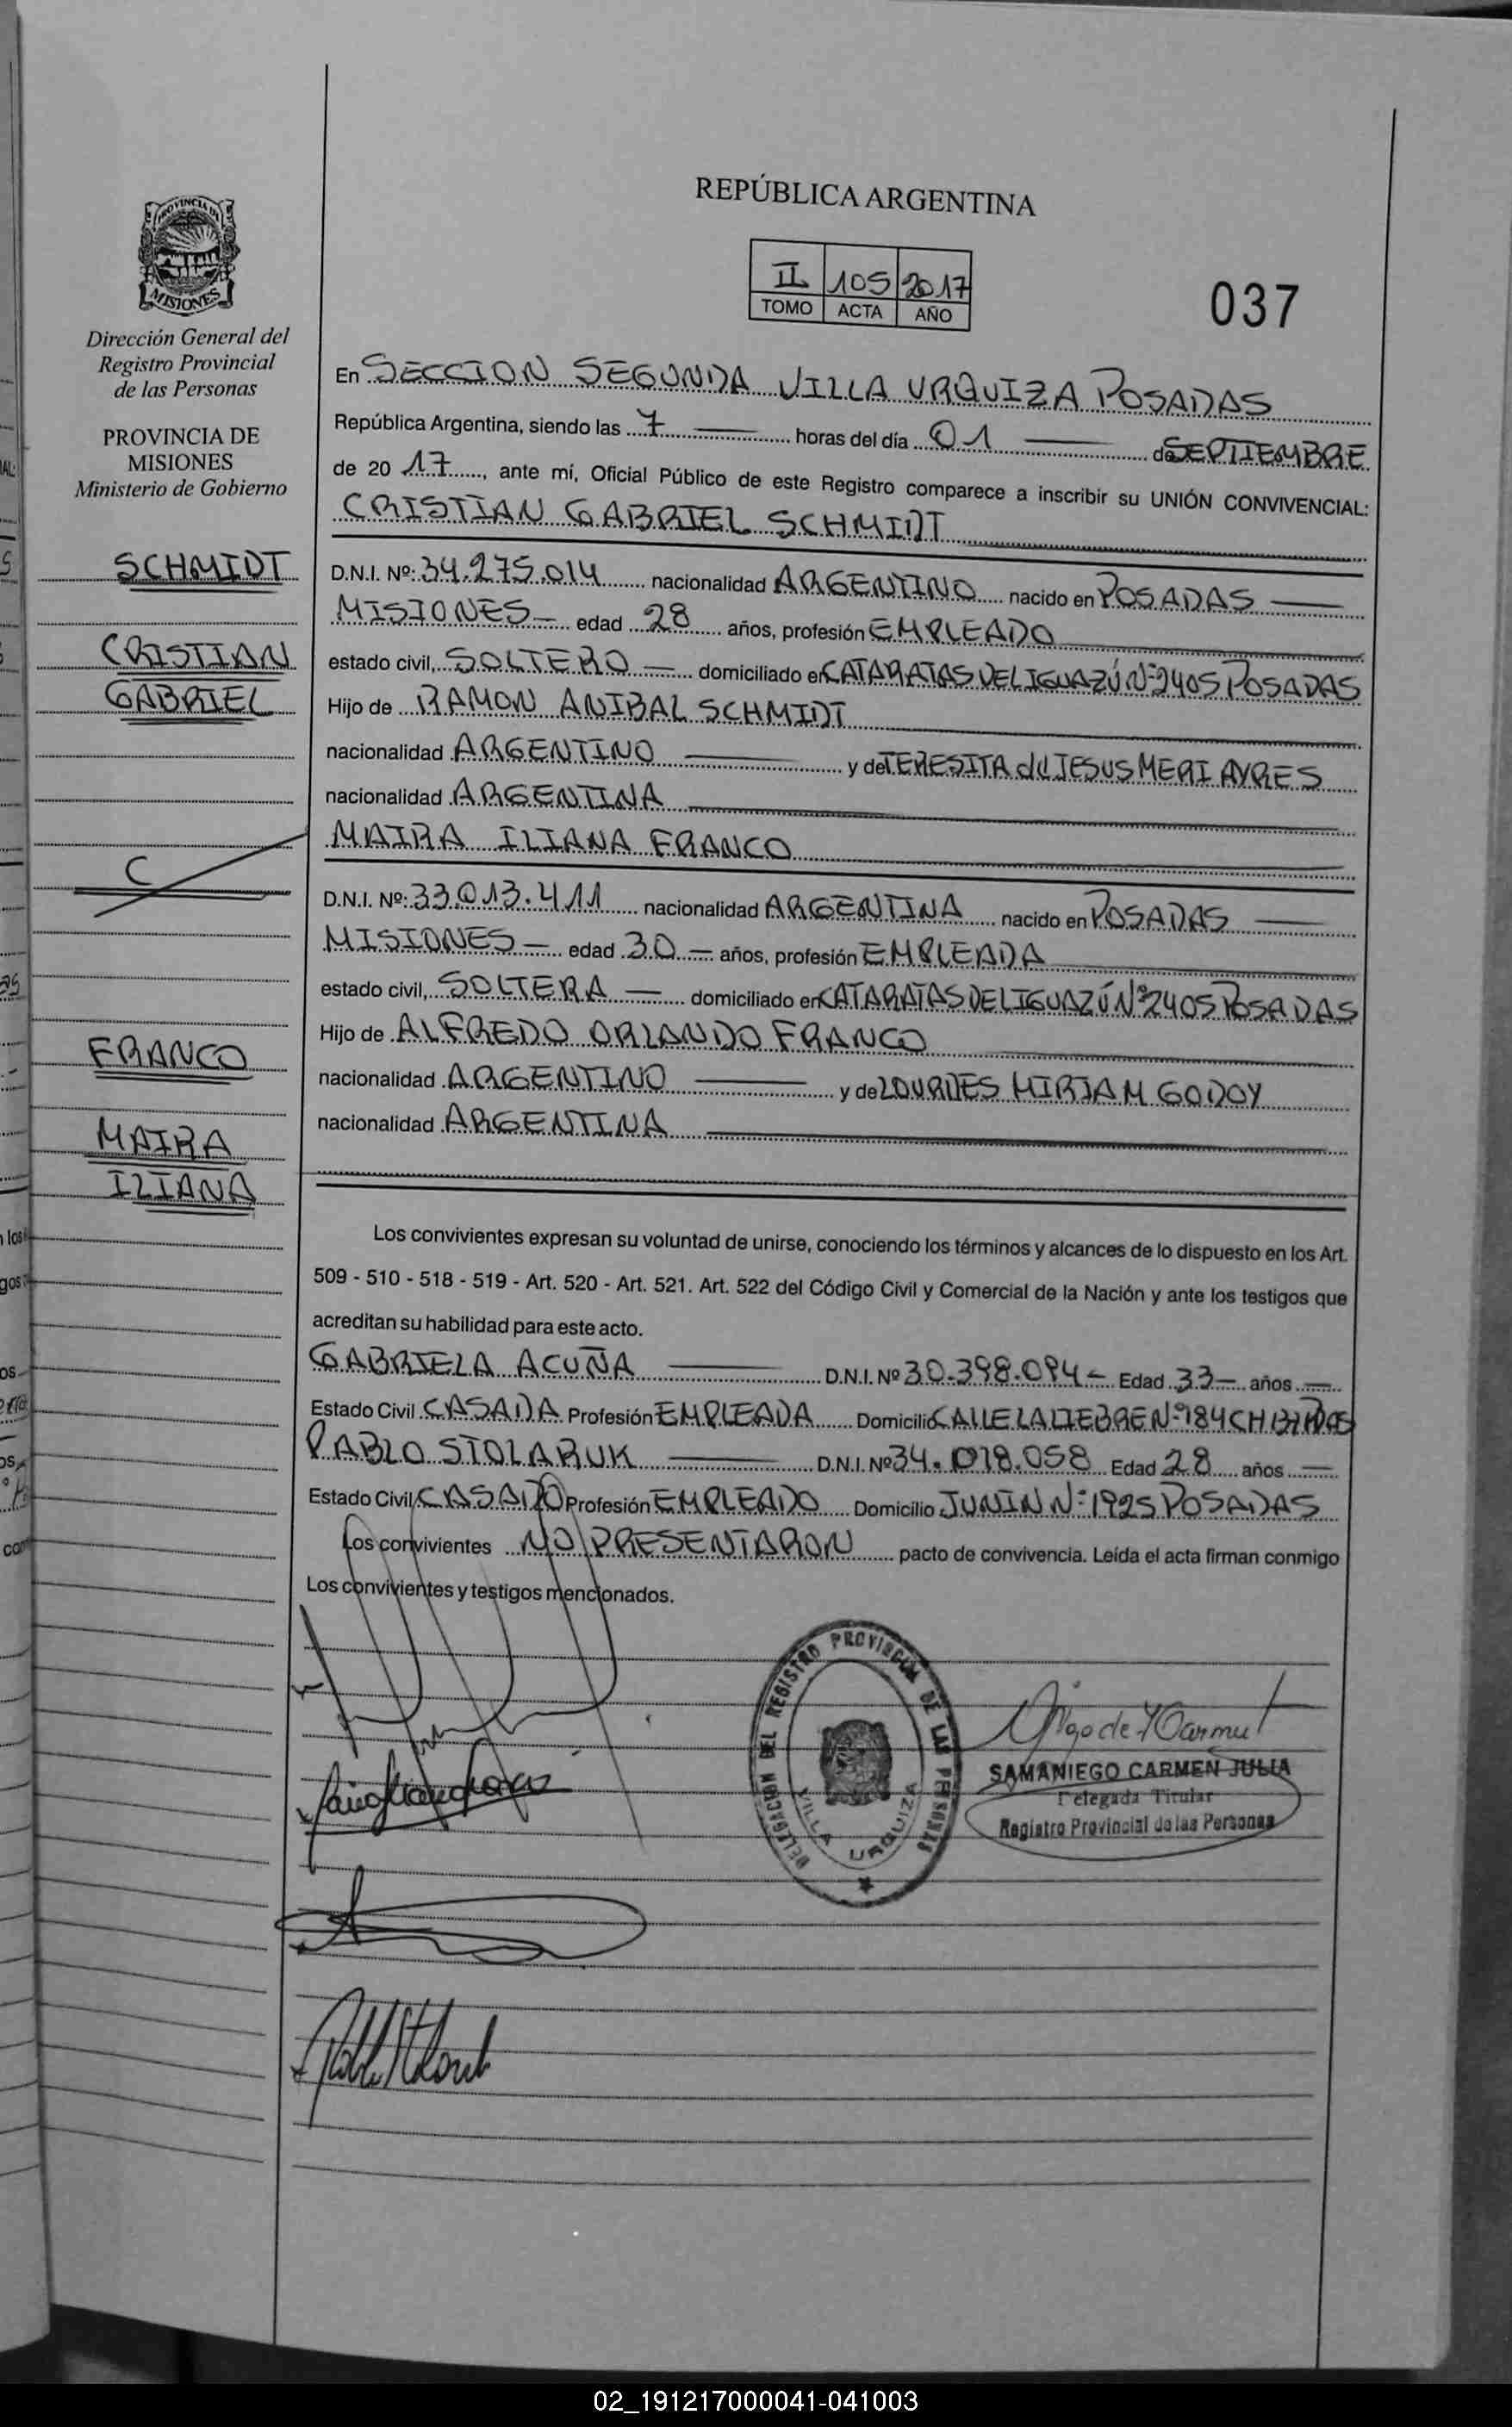 REPÚBLICA ARGENTINA
II 105 2017
TOMO ACTA AÑO
037
PROVINCIA DE MISIONES
Dirección General del
Registro Provincial
de las Personas
PROVINCIA DE
MISIONES
Ministerio de Gobierno
SCHMIDT
CRISTIAN
GABRIEL
C
FRANCO
MAIRA
ILIANA
En SECCION SEGUNDA VILLA URQUIZA POSADAS
República Argentina, siendo las 7 horas del día 01 de SEPTIEMBRE
de 20 17, ante mí, Oficial Público de este Registro comparece a inscribir su UNIÓN CONVIVENCIAL:
CRISTIAN GABRIEL SCHMIDT
D.N.I. Nº: 34.275.014 nacionalidad ARGENTINO nacido en POSADAS
MISIONES edad 28 años, profesión EMPLEADO
estado civil, SOLTERO domiciliado en CATARATAS DEL IGUAZÚ Nº 2405 POSADAS
Hijo de RAMON ANIBAL SCHMIDT
nacionalidad ARGENTINO y de TERESITA del JESUS MERI AYRES
nacionalidad ARGENTINA
MAIRA ILIANA FRANCO
D.N.I. Nº: 33.013.411 nacionalidad ARGENTINA nacido en POSADAS
MISIONES edad 30 años, profesión EMPLEADA
estado civil, SOLTERA domiciliado en CATARATAS DEL IGUAZÚ Nº 2405 POSADAS
Hijo de ALFREDO ORLANDO FRANCO
nacionalidad ARGENTINO y de LOURDES MIRIAM GODOY
nacionalidad ARGENTINA
Los convivientes expresan su voluntad de unirse, conociendo los términos y alcances de lo dispuesto en los Art.
509 - 510 - 518 - 519 - Art. 520 - Art. 521. Art. 522 del Código Civil y Comercial de la Nación y ante los testigos que
acreditan su habilidad para este acto.
GABRIELA ACUÑA D.N.I. Nº 30.398.094 Edad 33 años
Estado Civil CASADA Profesión EMPLEADA Domicilio CALLE LA LIEBRE Nº 184 CH
PABLO STOLARUK D.N.I. Nº 34.018.058 Edad 28 años
Estado Civil CASADO Profesión EMPLEADO Domicilio JUNIN Nº 1925 POSADAS
Los convivientes NO PRESENTARON pacto de convivencia. Leída el acta firman conmigo
Los convivientes y testigos mencionados.
DELEGACION DEL REGISTRO PROVINCIAL DE LAS PERSONAS
VILLA URQUIZA
SAMANIEGO CARMEN JULIA
Delegada Titular
Registro Provincial de las Personas
02_191217000041-041003